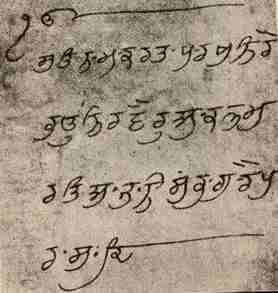 ੴ
ਸਤਿ ਨਾਮੁ ਕਰਤਾ ਪੁਰਖੁ ਨਿਰ
ਭਉ ਨਿਰਵੈਰੁ ਅਕਾਲ ਮੂ
ਰਤਿ ਅਜੂਨੀ ਸੈਭੰ ਗੁਰ ਪ
ਰਸਾਦਿ